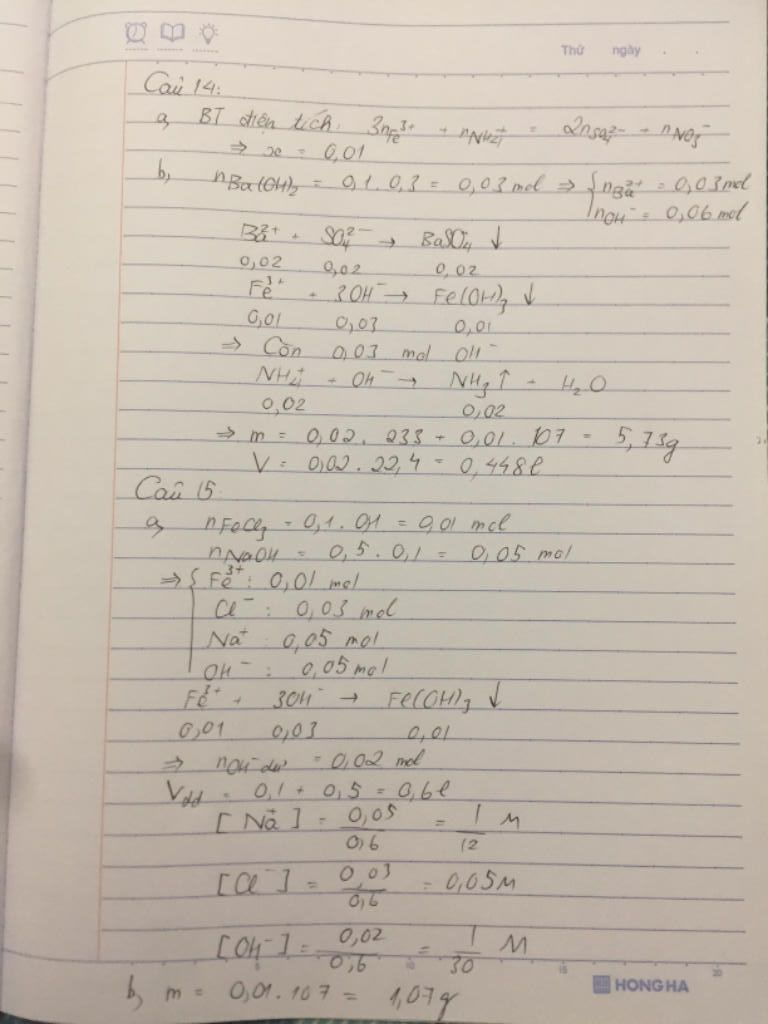 Thứ ngày . .
Câu 14:
a, BT điện tích: 3nFe³⁺ + nNH₄⁺ = 2nSO₄²⁻ + nNO₃⁻
⇒ x = 0,01
b, nBa(OH)₂ = 0,1 . 0,3 = 0,03 mol ⇒ { nBa²⁺ = 0,03 mol
nOH⁻ = 0,06 mol
Ba²⁺ + SO₄²⁻ → BaSO₄ ↓
0,02 0,02 0,02
Fe³⁺ + 3OH⁻ → Fe(OH)₃ ↓
0,01 0,03 0,01
⇒ Còn 0,03 mol OH⁻
NH₄⁺ + OH⁻ → NH₃ ↑ + H₂O
0,02 0,02
⇒ m = 0,02 . 233 + 0,01 . 107 = 5,73g
V = 0,02 . 22,4 = 0,448l
Câu 15:
a, nFeCl₃ = 0,1 . 0,1 = 0,01 mol
nNaOH = 0,5 . 0,1 = 0,05 mol
⇒ { Fe³⁺ : 0,01 mol
Cl⁻ : 0,03 mol
Na⁺ : 0,05 mol
OH⁻ : 0,05 mol
Fe³⁺ + 3OH⁻ → Fe(OH)₃ ↓
0,01 0,03 0,01
⇒ nOH⁻ dư = 0,02 mol
Vdd = 0,1 + 0,5 = 0,6l
[Na⁺] = 0,05/0,6 = 1/12 M
[Cl⁻] = 0,03/0,6 = 0,05M
[OH⁻] = 0,02/0,6 = 1/30 M
5 10 15 20
HONG HA
b, m = 0,01 . 107 = 1,07g